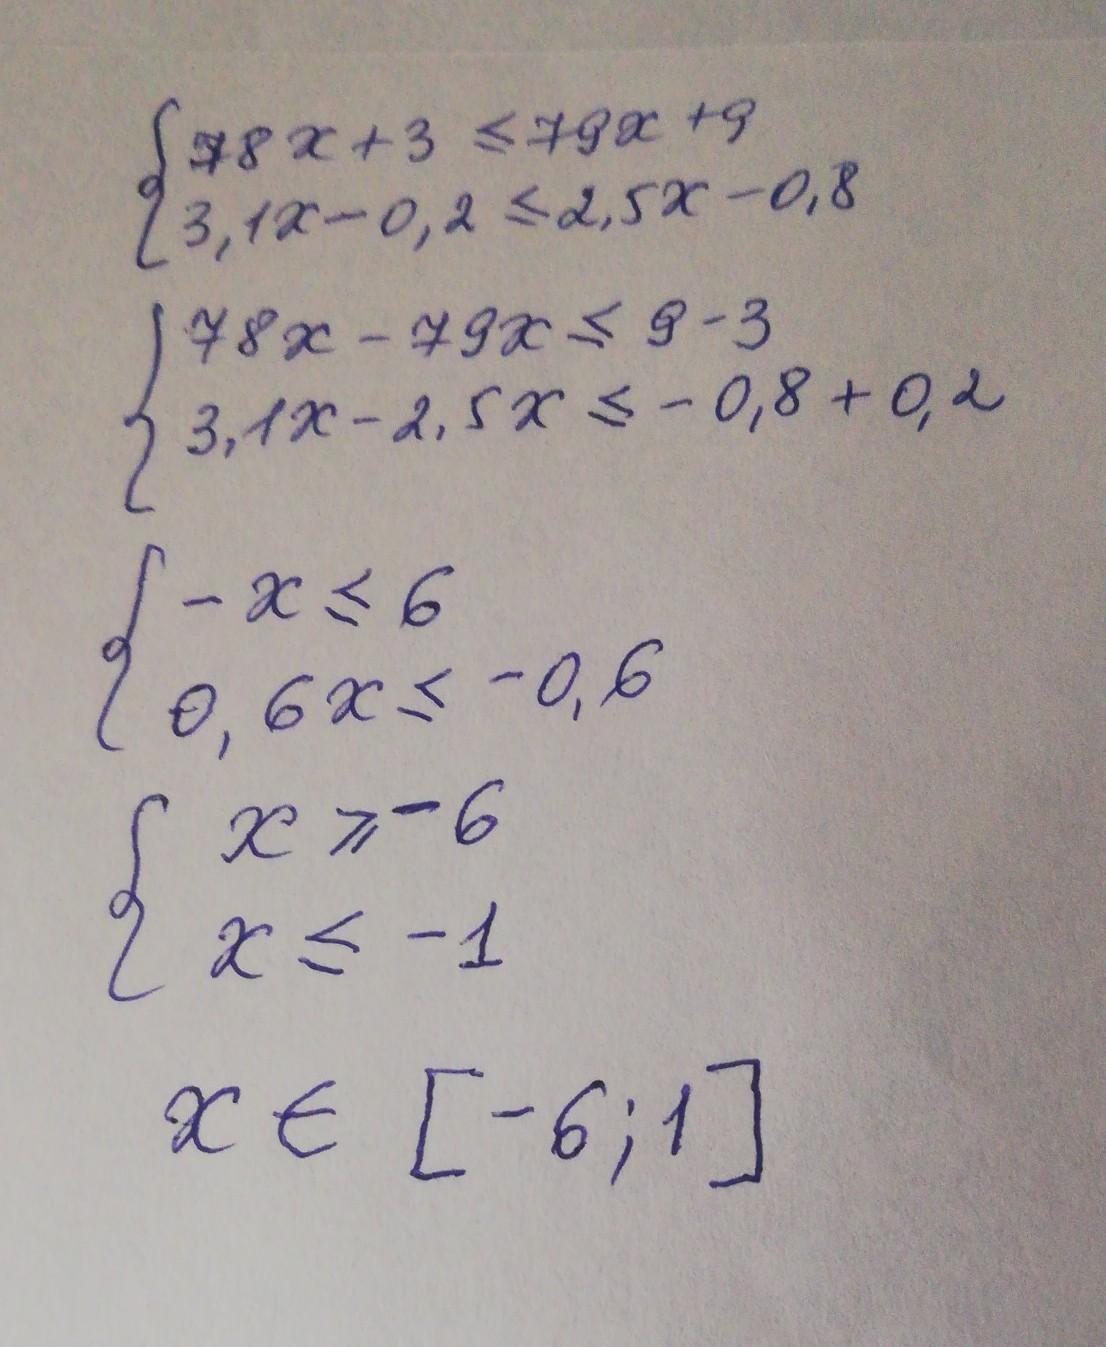 78x+3 ≤ 79x+9
3,1x-0,2 ≤ 2,5x-0,8
78x-79x ≤ 9-3
3,1x-2,5x ≤ -0,8+0,2
-x ≤ 6
0,6x ≤ -0,6
x ⩾ -6
x ≤ -1
x ∈ [-6;1]